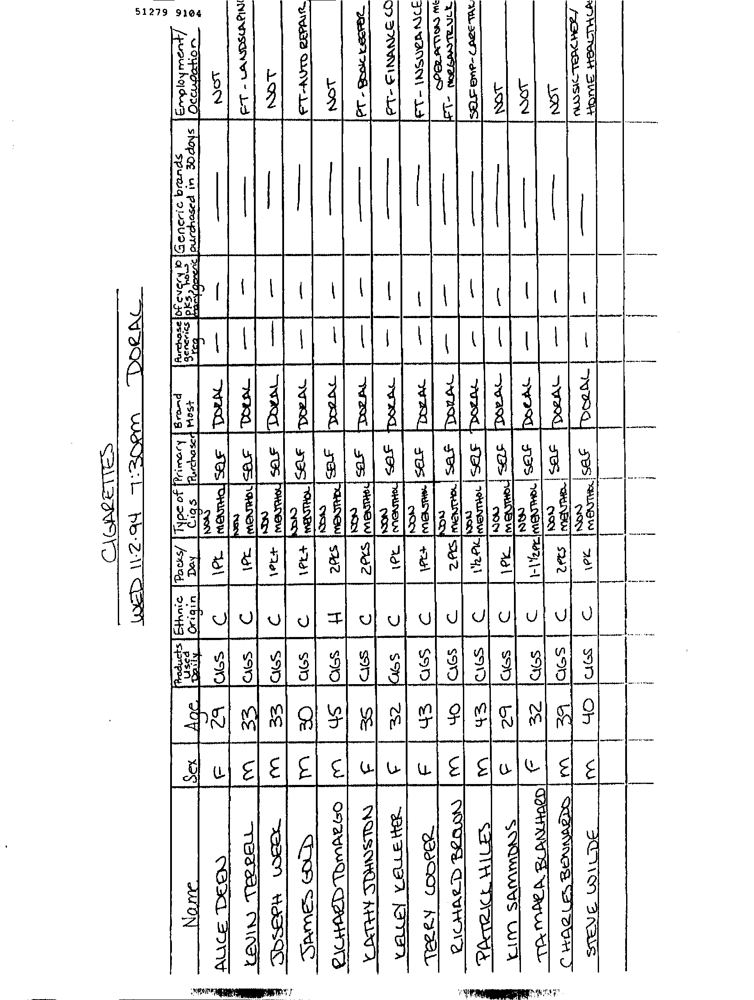 51279 9104
CIGARETTES
WED 11·2·94 7:30PM DORAL
Name Sex Age Products Used Daily Ethnic Origin Packs/Day Type of Cigs Primary Purchaser Brand Most Purchase generics reg Of every 10 pks, how many generic Generic brands purchased in 30 days Employment/Occupation
ALICE DEEN F 29 CIGS C 1PK NON MENTHOL SELF DORAL — — — NOT
KEVIN TERRELL M 33 CIGS C 1PK NON MENTHOL SELF DORAL — — — FT-LANDSCAPIN
JOSEPH WEEK M 33 CIGS C 1PK+ NON MENTHOL SELF DORAL — — — NOT
JAMES GOLD M 30 CIGS C 1PK+ NON MENTHOL SELF DORAL — — — FT-AUTO REPAIR
RICHARD TOMARGO M 45 CIGS H 2PKS NON MENTHOL SELF DORAL — — — NOT
KATHY JOHNSTON F 35 CIGS C 2PKS NON MENTHOL SELF DORAL — — — PT-BOOKKEEPER
KELLEY KELLEHER F 32 CIGS C 1PK NON MENTHOL SELF DORAL — — — FT-FINANCE CO
TERRY COOPER F 43 CIGS C 1PK+ NON MENTHOL SELF DORAL — — — FT-INSURANCE
RICHARD BROWN M 40 CIGS C 2PKS NON MENTHOL SELF DORAL — — — OPERATION ME FT-
PATRICK HILES M 43 CIGS C 1½PK NON MENTHOL SELF DORAL — — — SELF EMP-CARETAK
KIM SAMMONS F 29 CIGS C 1PK NON MENTHOL SELF DORAL — — — NOT
TAMARA BLANKHARD F 32 CIGS C 1-1½PK NON MENTHOL SELF DORAL — — — NOT
CHARLES BENNARDO M 39 CIGS C 2PKS NON MENTHOL SELF DORAL — — — NOT
STEVE WILDE M 40 CIGS C 1PK NON MENTHOL SELF DORAL — — — MUSIC TEACHER/HOME HEALTH CA